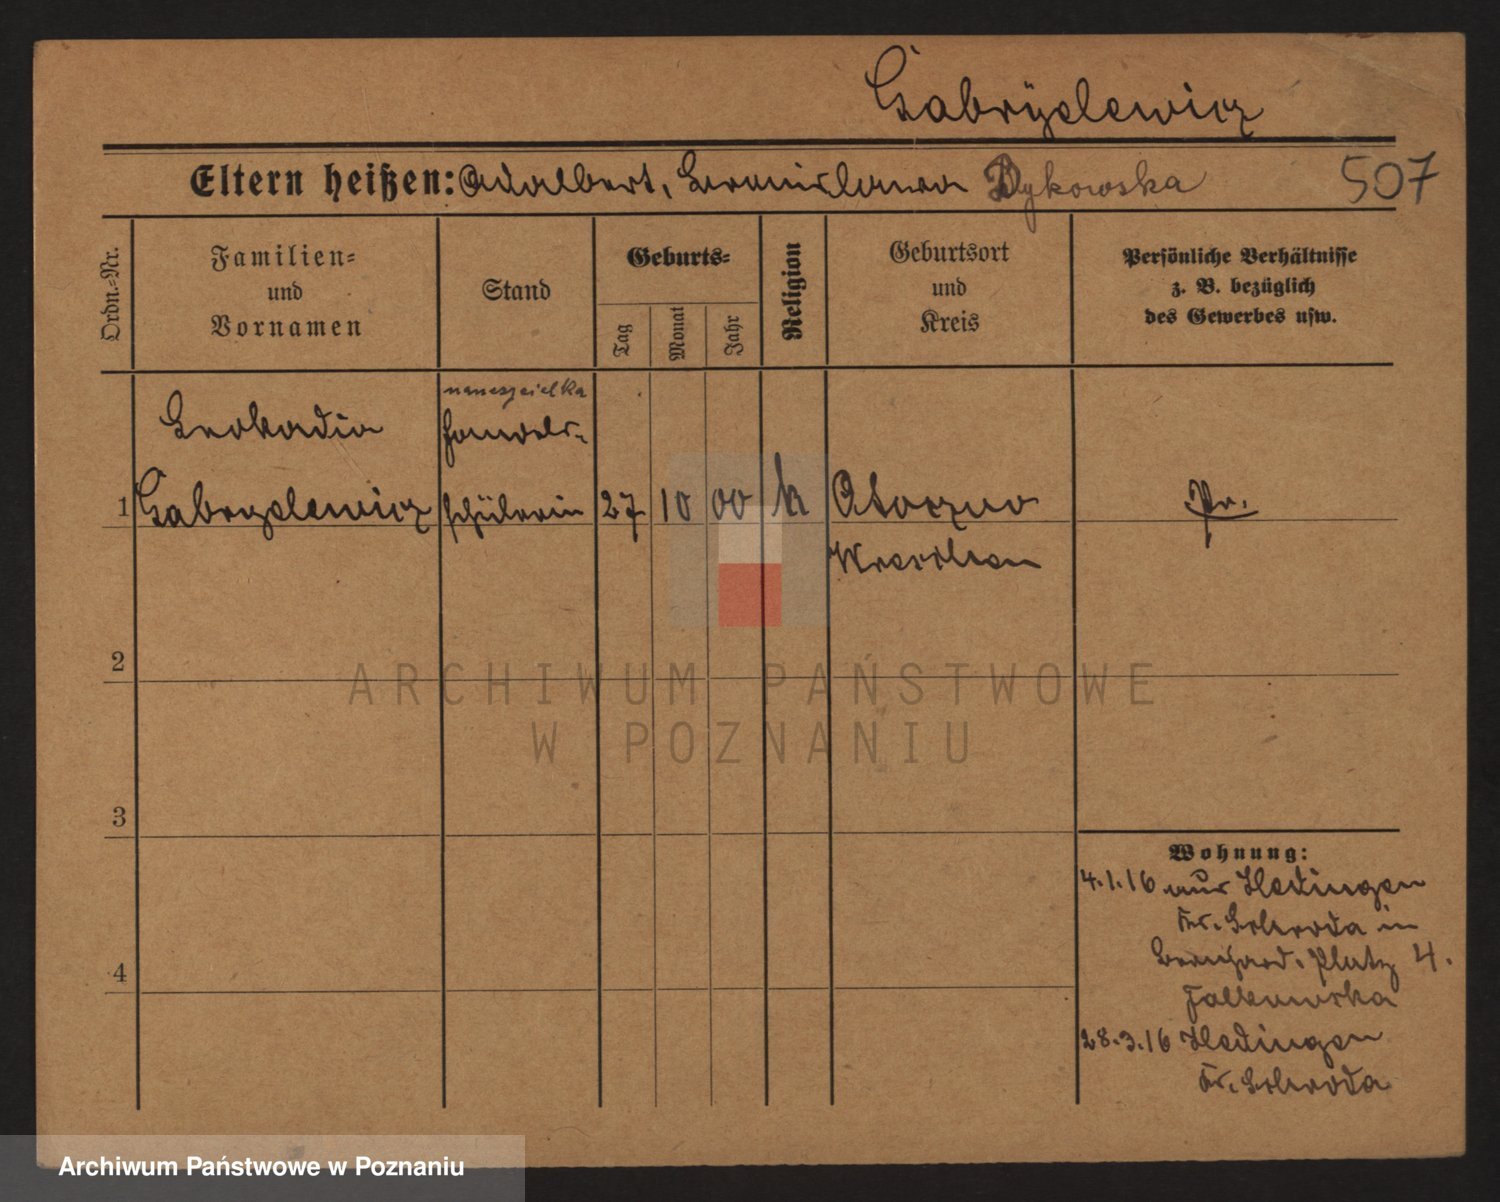 Gabryelewicz
Eltern heißen: Adalbert, Bronislawa Dykowska 507
Ordn.-Nr.
Familien-
und
Vornamen
Stand
Geburts-
Tag
Monat
Jahr
Religion
Geburtsort
und
Kreis
Persönliche Verhältnisse
z. B. bezüglich
des Gewerbes usw.
nauczycielka
Leokadia Handels-
1 Gabryelewicz schülerin 27 10 00 k Otoczno Pr.
Wreschen
2
3
4
Wohnung:
4.1.16 aus Hedingen
Kr. Schroda in
Bernhard. Platz 4.
Falkowska
28.3.16 Hedingen
Kr. Schroda
ARCHIWUM PAŃSTWOWE
W POZNANIU
Archiwum Państwowe w Poznaniu